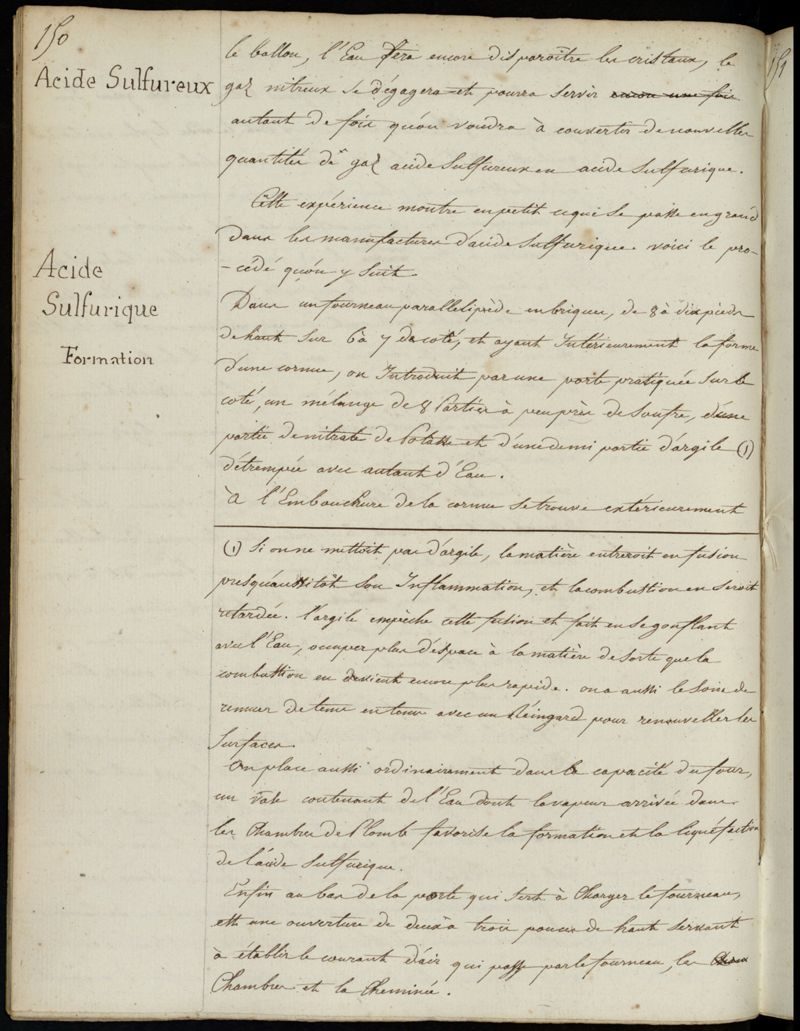 150
Acide Sulfureux
le ballon, l'Eau fera encore disparoître les cristaux, le
gaz nitreux se dégagera et pourra servir encore une fois
autant de fois qu'on voudra à convertir de nouvelles
quantités de gaz acide Sulfureux en acide Sulfurique.
Cette expérience montre en petit ce qui se passe en grand
dans les manufactures d'acide Sulfurique. voici le pro-
-cédé qu'on y Suit.
Acide
Sulfurique
Formation
Dans un fourneau parallelipipède en briques, de 8 à dix pieds
de haut Sur 6 à 7 de coté, et ayant Intérieurement la forme
d'une cornue, on Introduit par une porte pratiquée Sur le
coté, un mélange de 8 Parties à peu près de Soufre, d'une
partie de nitrate de Potasse et d'une demi partie d'argile (1)
détrempée avec autant d'Eau.
à l'Embouchure de la cornue se trouve extérieurement
(1) Si on ne mettoit pas d'argile, la matière entreroit en fusion
presqu'aussitôt Son Inflammation, et la combustion en Seroit
retardée. l'argile empèche cette fusion et fait en se gonflant
avec l'Eau, occuper plus d'espace à la matière de sorte que la
combustion en devient encore plus rapide. on a aussi le soin de
remuer de tems en tems avec un Ringard pour renouveller les
Surfaces.
On place aussi ordinairement dans la capacité du four,
un vase contenant de l'Eau dont la vapeur arrivée dans
les Chambres de Plomb favorise la formation et la liquéfaction
de l'acide Sulfurique.
Enfin au bas de la porte qui Sert à Charger le fourneau,
est une ouverture de deux à trois pouces de haut Servant
à établir le courant d'air qui passe par le fourneau, les
Chambres et la Cheminée.
151